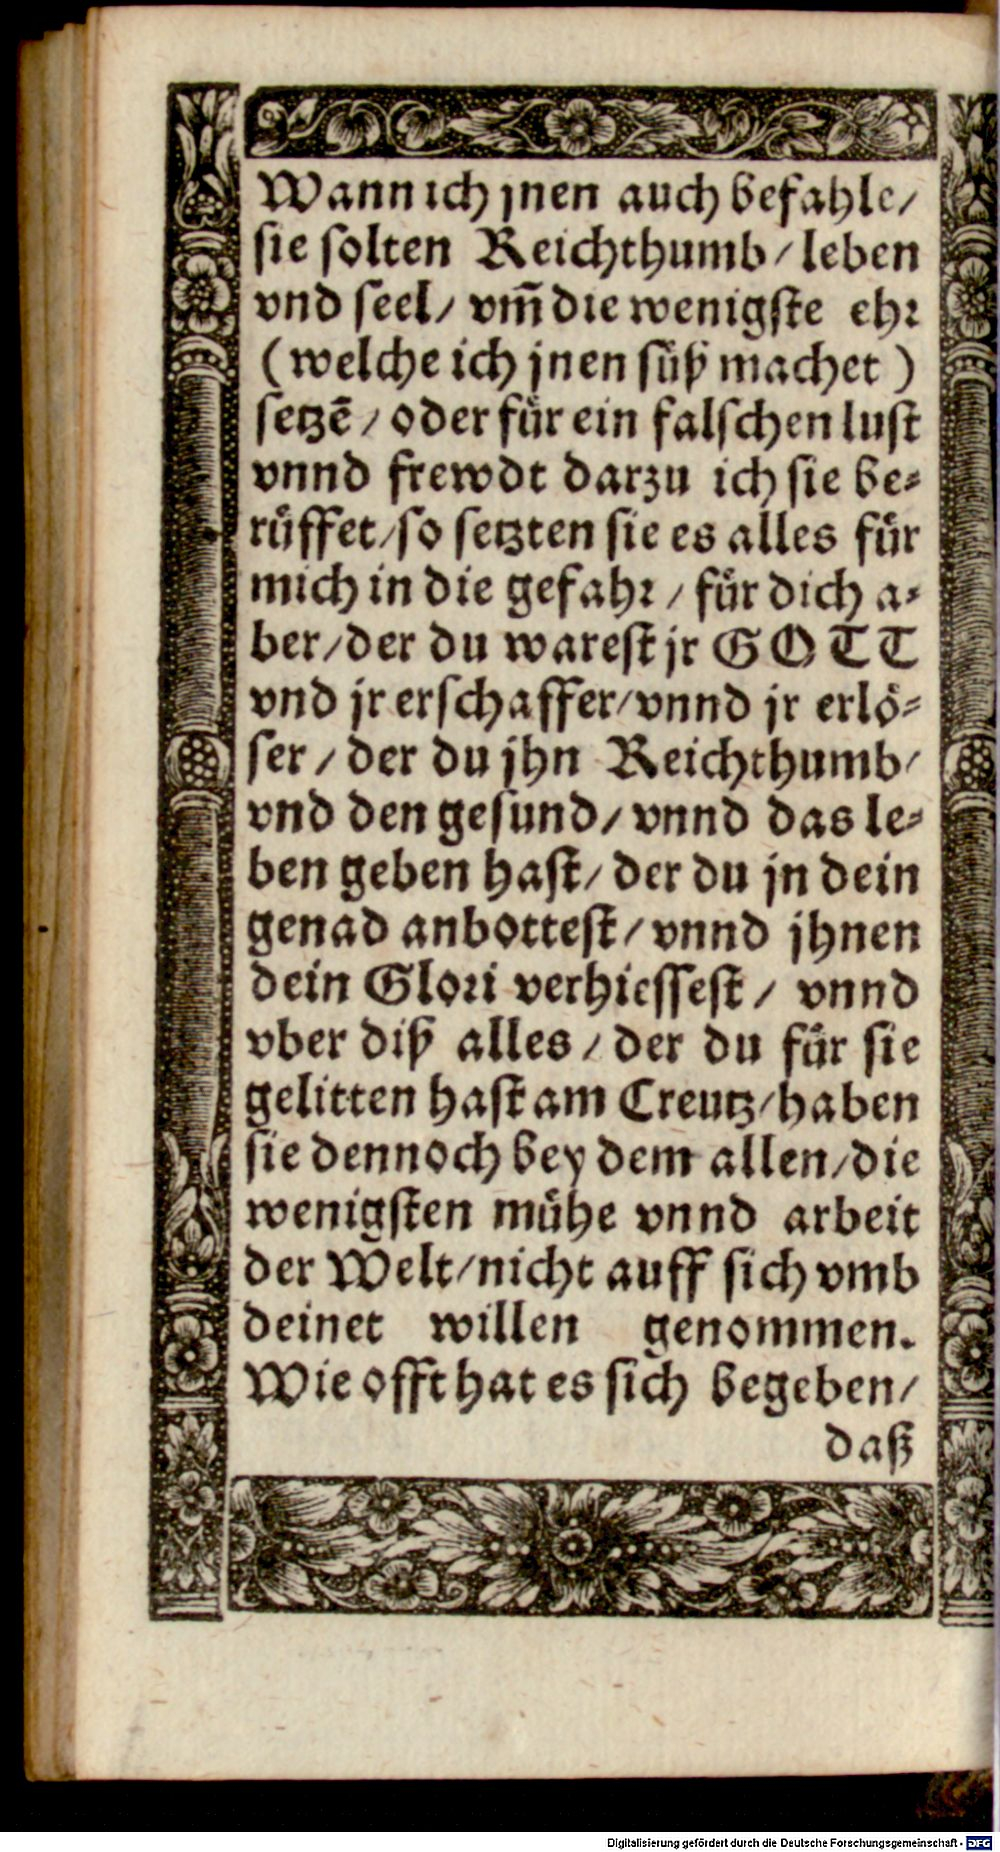 Wann ich jnen auch befahle/
sie solten Reichthumb/ leben
vnd seel/ vm̃ die wenigste ehr
(welche ich jnen süß machet)
setzẽ/ oder für ein falschen lust
vnnd frewdt darzu ich sie be⸗
rüffet/ so setzten sie es alles für
mich in die gefahr/ für dich a⸗
ber/ der du warest jr GOTT
vnd jr erschaffer/ vnnd jr erlö⸗
ser/ der du jhn Reichthumb/
vnd den gesund/ vnnd das le⸗
ben geben hast/ der du jn dein
genad anbottest/ vnnd jhnen
dein Glori verhiessest/ vnnd
vber diß alles/ der du für sie
gelitten hast am Creutz/ haben
sie dennoch bey dem allen/ die
wenigsten mühe vnnd arbeit
der Welt/ nicht auff sich vmb
deinet willen genommen.
Wie offt hat es sich begeben/
daß
Digitalisierung gefördert durch die Deutsche Forschungsgemeinschaft - DFG